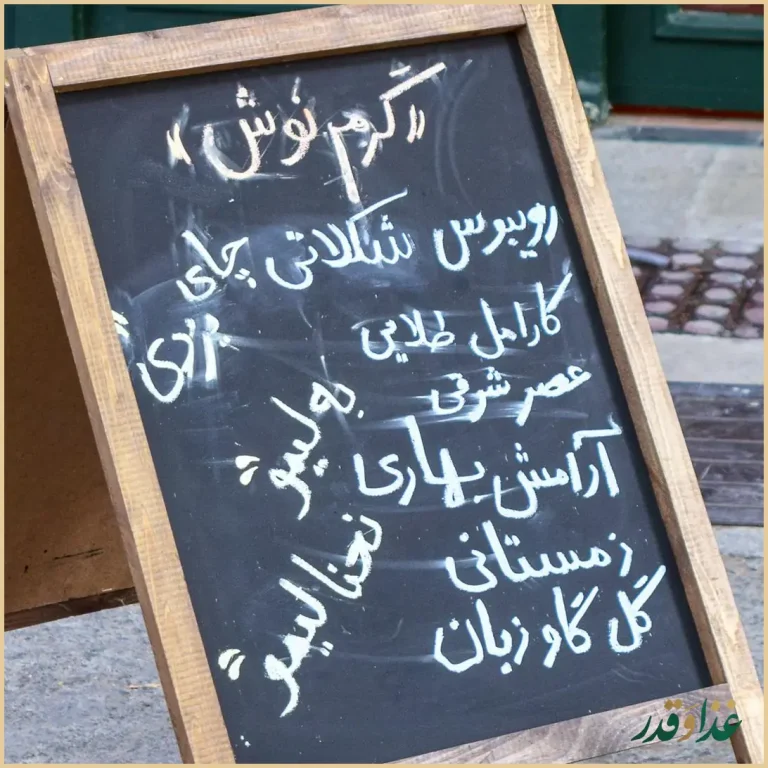 « گرم نوش »
رویبوس شکلاتی
کارامل طلایی
عصر شرقی
آرامش بهاری
زمستانی
گل گاو زبان
چای
به لیمو
نعنا لیمو
غذا و قدر